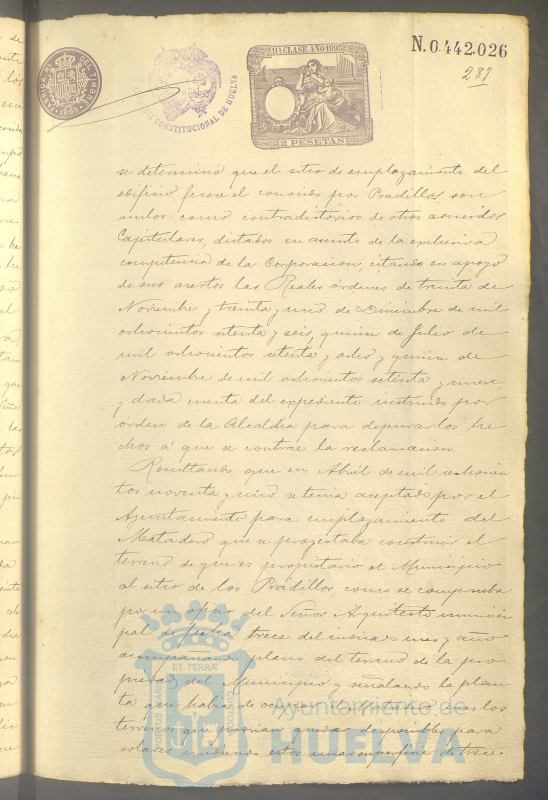 11ª CLASE AÑO 1893
2 PESETAS
N.0.442.026
287
CONSTITUCIONAL DE HUELVA
se determinó que el sitio de emplazamiento del
edificio fuese el conocido por Pradillos, son
nulos como contradictorios de otros acuerdos
Capitulares, dictados en asunto de la exclusiva
competencia de la Corporacion, citando en apoyo
de sus asertos las Reales órdenes de treinta de
Noviembre y treinta y uno de Diciembre de mil
ochocientos setenta y seis, quince de Julio de
mil ochocientos setenta y ocho y quince de
Noviembre de mil ochocientos setenta y nueve,
y dada cuenta del expediente instruido por
órden de la Alcaldia para depurar los he
chos á que se contrae la reclamacion
Resultando que en Abril de mil ochocien
tos noventa y uno se tenia aceptado por el
Ayuntamiento para emplazamiento del
Matadero que se proyectaba construir el
terreno de que es propietario el Municipio
al sitio de los Pradillos, como se comprueba
por un oficio del Señor Arquitecto munici
pal de fecha trece del indicado mes y año
acompañando plano del terreno de la pro
piedad del Municipio y señalando la plan
ta que habia de ocupar el Matadero y los
terrenos que podrian quedar disponibles para
solares midiendo estos una superficie de trece
ET TERRÆ
PORTUS MARIS
CUSTODIA
Ayuntamiento de
HUELVA